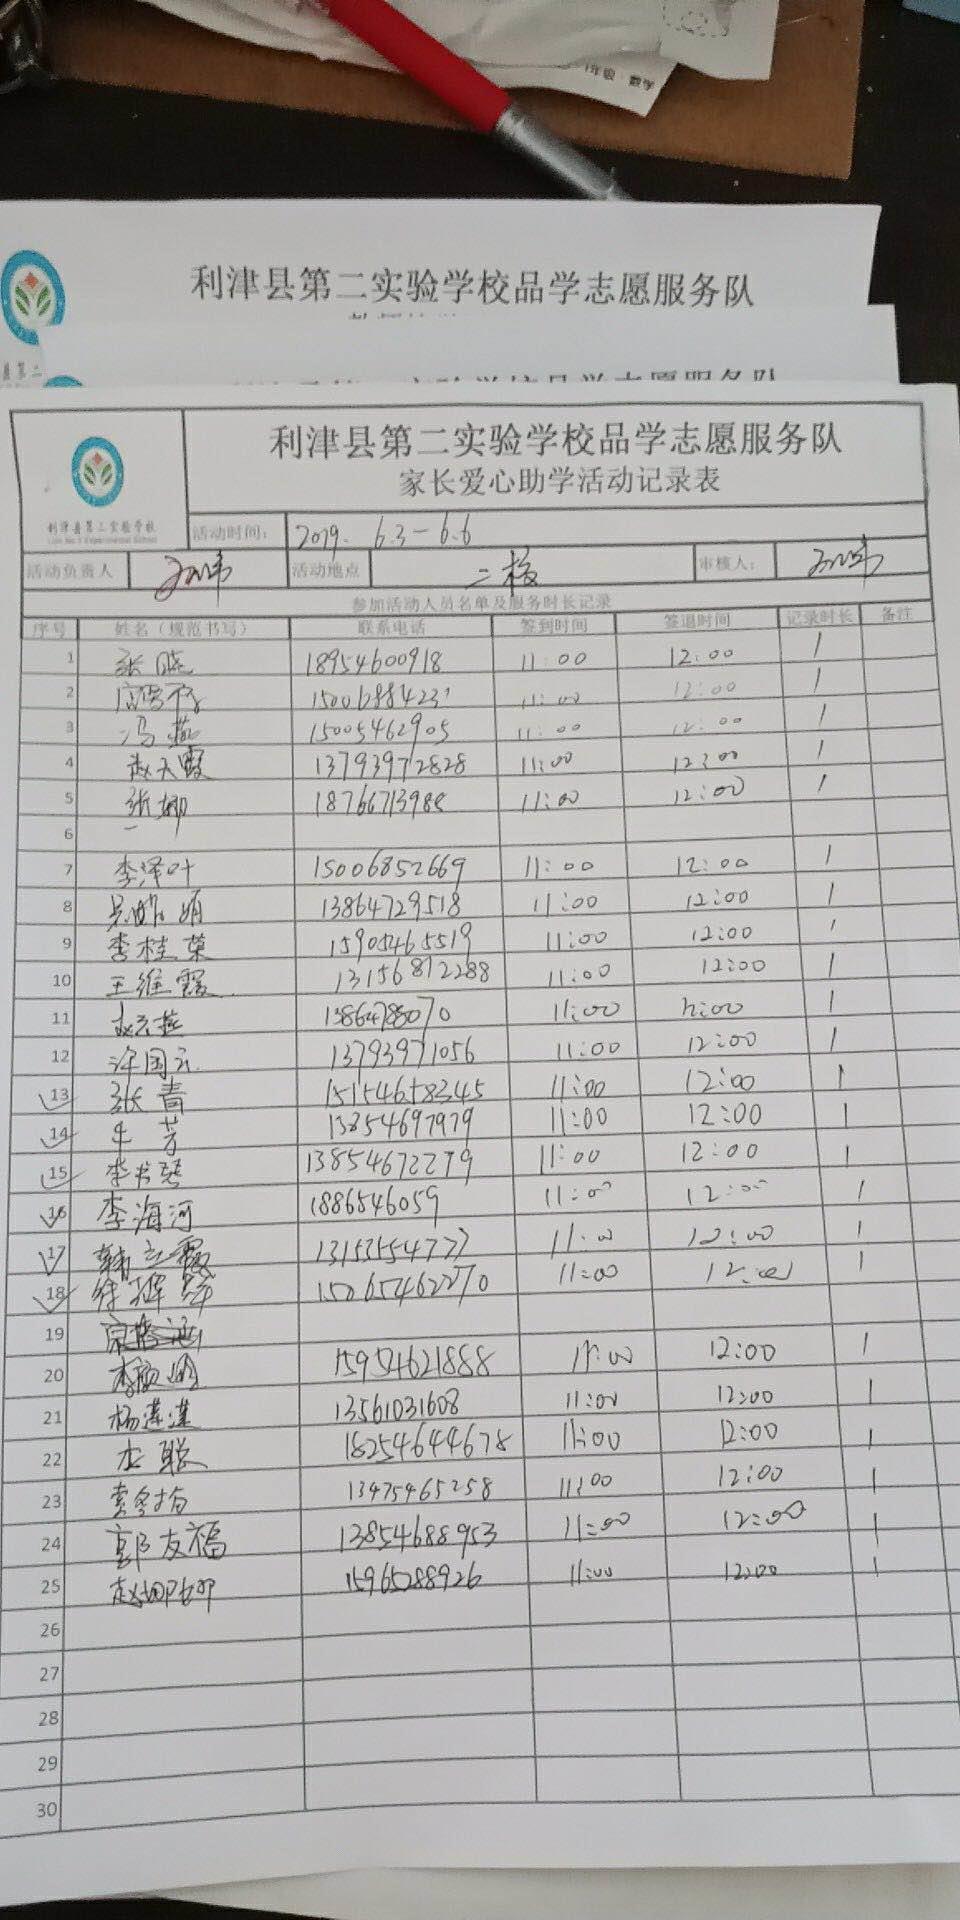 1年级·数学
利津县第二实验学校品学志愿服务队
县第二
利津县第二实验学校品学志愿服务队
家长爱心助学活动记录表
利津县第二实验学校
活动时间： 2019. 6.3－6.6
活动负责人 活动地点 二校 审核人：
参加活动人员名单及服务时长记录
序号 姓名（规范书写） 联系电话 签到时间 签退时间 记录时长 备注
1 张晓 18954600918 11:00 12:00 1
2 11:00 12:00 1
3 冯燕 15005462905 11:00 12:00 1
4 赵天霞 13793972828 11:00 12:00 1
5 张娜 11:00 12:00 1
6
7 李泽叶 15006852669 11:00 12:00 1
8 13864729518 11:00 12:00 1
9 李桂荣 15905465519 11:00 12:00 1
10 王维霞 13156812288 11:00 12:00 1
11 11:00 1
12 许国云 13793971056 11:00 12:00 1
13 张青 15154658345 11:00 12:00 1
14 13854697979 11:00 12:00 1
15 李书琴 13854672279 11:00 12:00 1
16 李海河 1886546059 11:00 12:00 1
17 韩立霞 13153554777 11:00 12:00 1
18 15065462270 11:00 12:00 1
19
20 15954621888 11:00 12:00 1
21 杨莲莲 13561031608 11:00 12:00 1
22 18254644678 11:00 12:00 1
23 13475465258 11:00 12:00 1
24 郭友福 13854688953 11:00 12:00 1
25 赵娜娜 15965288926 11:00 12:00 1
26
27
28
29
30